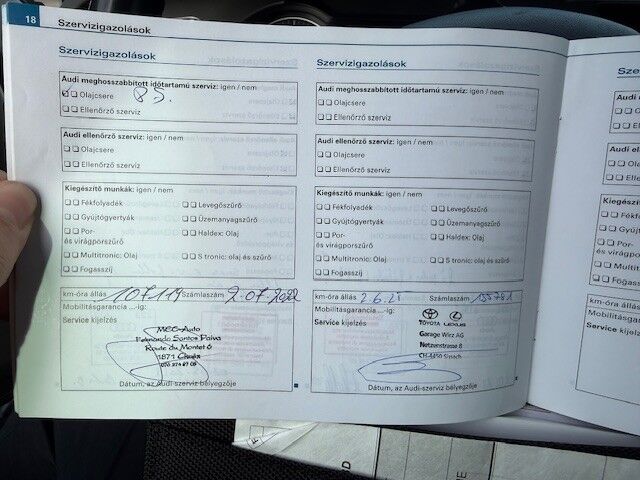 18 Szervizigazolások
Szervizigazolások
Audi meghosszabbított időtartamú szerviz: igen / nem
Olajcsere
Ellenőrző szerviz
Audi ellenőrző szerviz: igen / nem
Olajcsere
Ellenőrző szerviz
Kiegészítő munkák: igen / nem
Fékfolyadék Levegőszűrő
Gyújtógyertyák Üzemanyagszűrő
Por- Haldex: Olaj
és virágporszűrő
Multitronic: Olaj S tronic: olaj és szűrő
Fogasszíj
km-óra állás 107119 Számlaszám 2.07.2022
Mobilitásgarancia ...-ig:
Service kijelzés
MCC-Auto
Fernando Santos Paiva
Route du Montet 6
1871 Choëx
Dátum, az Audi-szerviz bélyegzője
Szervizigazolások
Audi meghosszabbított időtartamú szerviz: igen / nem
Olajcsere
Ellenőrző szerviz
Audi ellenőrző szerviz: igen / nem
Olajcsere
Ellenőrző szerviz
Kiegészítő munkák: igen / nem
Fékfolyadék Levegőszűrő
Gyújtógyertyák Üzemanyagszűrő
Por- Haldex: Olaj
és virágporszűrő
Multitronic: Olaj S tronic: olaj és szűrő
Fogasszíj
km-óra állás 2.6.25 Számlaszám
Mobilitásgarancia ...-ig:
Service kijelzés
TOYOTA LEXUS
Garage Wirz AG
Netzenstrasse 8
CH-4450 Sissach
Dátum, az Audi-szerviz bélyegzője
Szerv
Audi m
O
Ellen
Audi el
Olaj
Ellen
Kiegész
Fékf
Gyújt
Por-
és virág
Multi
Foga
km-óra
Mobilitá
Service